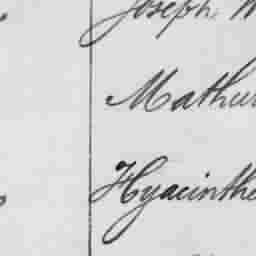 Joseph
Mathu
Hyacinthe